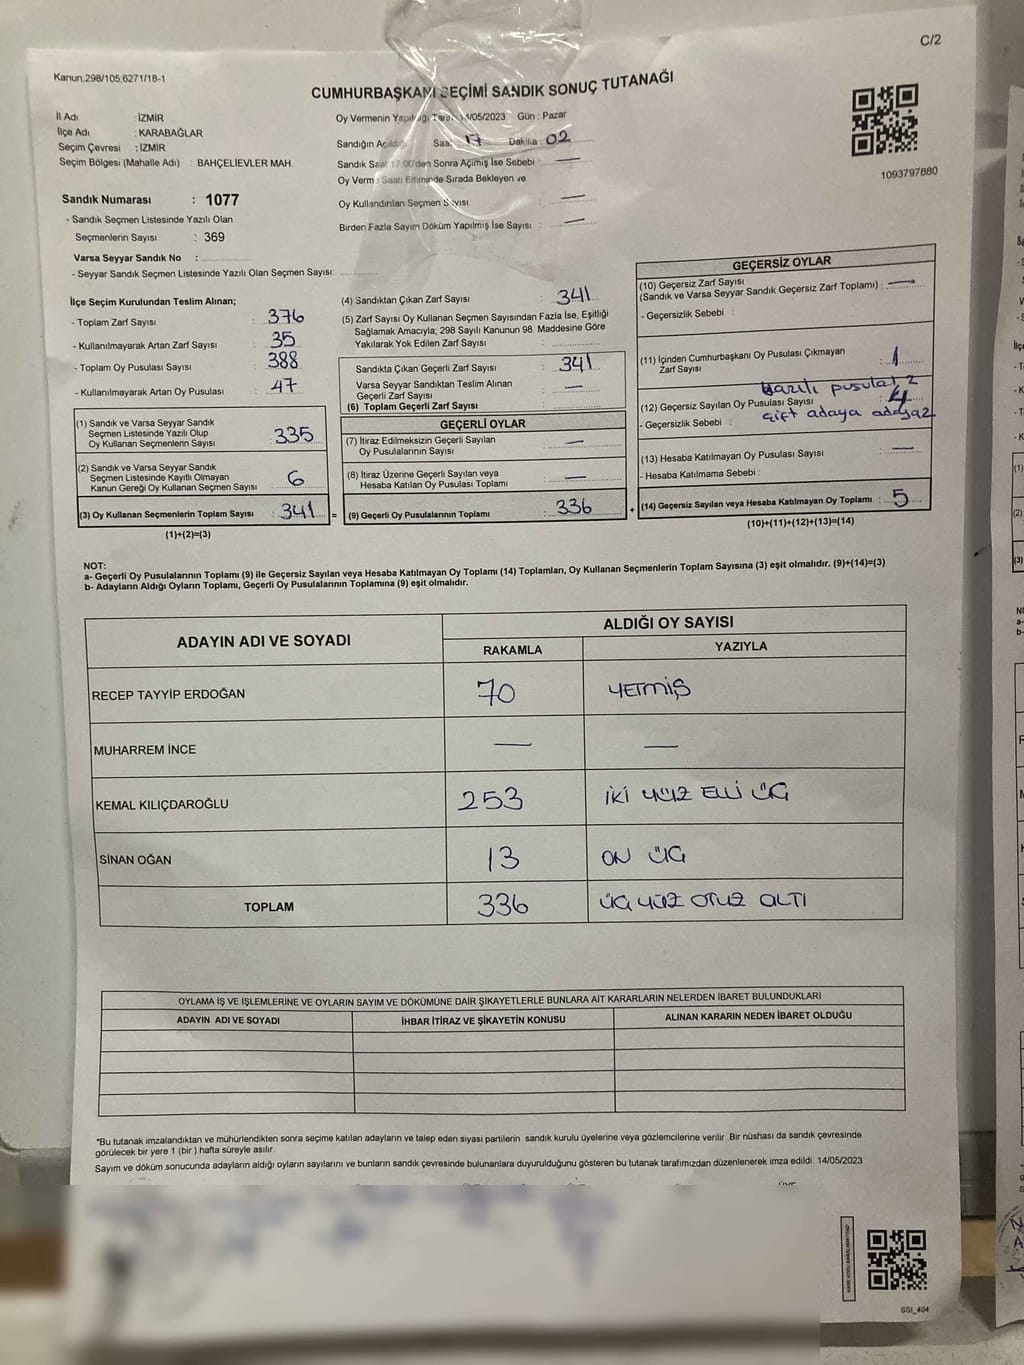 C/2
Kanun,298/105,6271/18-1
CUMHURBAŞKANI SEÇİMİ SANDIK SONUÇ TUTANAĞI
İl Adı : İZMİR
İlçe Adı : KARABAĞLAR
Seçim Çevresi : İZMİR
Seçim Bölgesi (Mahalle Adı) : BAHÇELİEVLER MAH.
Oy Vermenin Yapıldığı Tarih 14/05/2023 Gün : Pazar
Sandığın Açıldığı Saat 17 Dakika : 02
Sandık Saat 17:00'den Sonra Açılmış İse Sebebi : —
Oy Verme Saati Bitiminde Sırada Bekleyen ve
Oy Kullandırılan Seçmen Sayısı : —
Birden Fazla Sayım Döküm Yapılmış İse Sayısı : —
1093797880
Sandık Numarası : 1077
- Sandık Seçmen Listesinde Yazılı Olan
Seçmenlerin Sayısı : 369
Varsa Seyyar Sandık No :
- Seyyar Sandık Seçmen Listesinde Yazılı Olan Seçmen Sayısı:
İlçe Seçim Kurulundan Teslim Alınan;
- Toplam Zarf Sayısı : 376
- Kullanılmayarak Artan Zarf Sayısı : 35
- Toplam Oy Pusulası Sayısı : 388
- Kullanılmayarak Artan Oy Pusulası : 47
(1) Sandık ve Varsa Seyyar Sandık
Seçmen Listesinde Yazılı Olup
Oy Kullanan Seçmenlerin Sayısı : 335
(2) Sandık ve Varsa Seyyar Sandık
Seçmen Listesinde Kayıtlı Olmayan
Kanun Gereği Oy Kullanan Seçmen Sayısı : 6
(3) Oy Kullanan Seçmenlerin Toplam Sayısı : 341
(1)+(2)=(3)
(4) Sandıktan Çıkan Zarf Sayısı : 341
(5) Zarf Sayısı Oy Kullanan Seçmen Sayısından Fazla İse, Eşitliği
Sağlamak Amacıyla; 298 Sayılı Kanunun 98. Maddesine Göre
Yakılarak Yok Edilen Zarf Sayısı :
Sandıkta Çıkan Geçerli Zarf Sayısı : 341
Varsa Seyyar Sandıktan Teslim Alınan
Geçerli Zarf Sayısı : —
(6) Toplam Geçerli Zarf Sayısı :
=
GEÇERLİ OYLAR
(7) İtiraz Edilmeksizin Geçerli Sayılan
Oy Pusulasının Sayısı : —
(8) İtiraz Üzerine Geçerli Sayılan veya
Hesaba Katılan Oy Pusulası Toplamı : —
(9) Geçerli Oy Pusulalarının Toplamı : 336
+
GEÇERSİZ OYLAR
(10) Geçersiz Zarf Sayısı
(Sandık ve Varsa Seyyar Sandık Geçersiz Zarf Toplamı) : —
- Geçersizlik Sebebi :
(11) İçinden Cumhurbaşkanı Oy Pusulası Çıkmayan
Zarf Sayısı : 1
Yazılı pusula: 2
(12) Geçersiz Sayılan Oy Pusulası Sayısı : 4
- Geçersizlik Sebebi : Çift adaya 2
(13) Hesaba Katılmayan Oy Pusulası Sayısı : —
- Hesaba Katılmama Sebebi :
(14) Geçersiz Sayılan veya Hesaba Katılmayan Oy Toplamı : 5
(10)+(11)+(12)+(13)=(14)
NOT:
a- Geçerli Oy Pusulalarının Toplamı (9) ile Geçersiz Sayılan veya Hesaba Katılmayan Oy Toplamı (14) Toplamları, Oy Kullanan Seçmenlerin Toplam Sayısına (3) eşit olmalıdır. (9)+(14)=(3)
b- Adayların Aldığı Oyların Toplamı, Geçerli Oy Pusulalarının Toplamına (9) eşit olmalıdır.
ADAYIN ADI VE SOYADI ALDIĞI OY SAYISI
RAKAMLA YAZIYLA
RECEP TAYYİP ERDOĞAN 70 YETMİŞ
MUHARREM İNCE — —
KEMAL KILIÇDAROĞLU 253 İKİ YÜZ ELLİ ÜÇ
SİNAN OĞAN 13 ON ÜÇ
TOPLAM 336 ÜÇ YÜZ OTUZ ALTI
OYLAMA İŞ VE İŞLEMLERİNE VE OYLARIN SAYIM VE DÖKÜMÜNE DAİR ŞİKAYETLERLE BUNLARA AİT KARARLARIN NELERDEN İBARET BULUNDUKLARI
ADAYIN ADI VE SOYADI İHBAR İTİRAZ VE ŞİKAYETİN KONUSU ALINAN KARARIN NEDEN İBARET OLDUĞU
*Bu tutanak imzalandıktan ve mühürlendikten sonra seçime katılan adayların ve talep eden siyasi partilerin sandık kurulu üyelerine veya gözlemcilerine verilir. Bir nüshası da sandık çevresinde
görülecek bir yere 1 (bir ) hafta süreyle asılır.
Sayım ve döküm sonucunda adayların aldığı oyların sayılarını ve bunların sandık çevresinde bulunanlara duyurulduğunu gösteren bu tutanak tarafımızdan düzenlenerek imza edildi. 14/05/2023
SSI_404